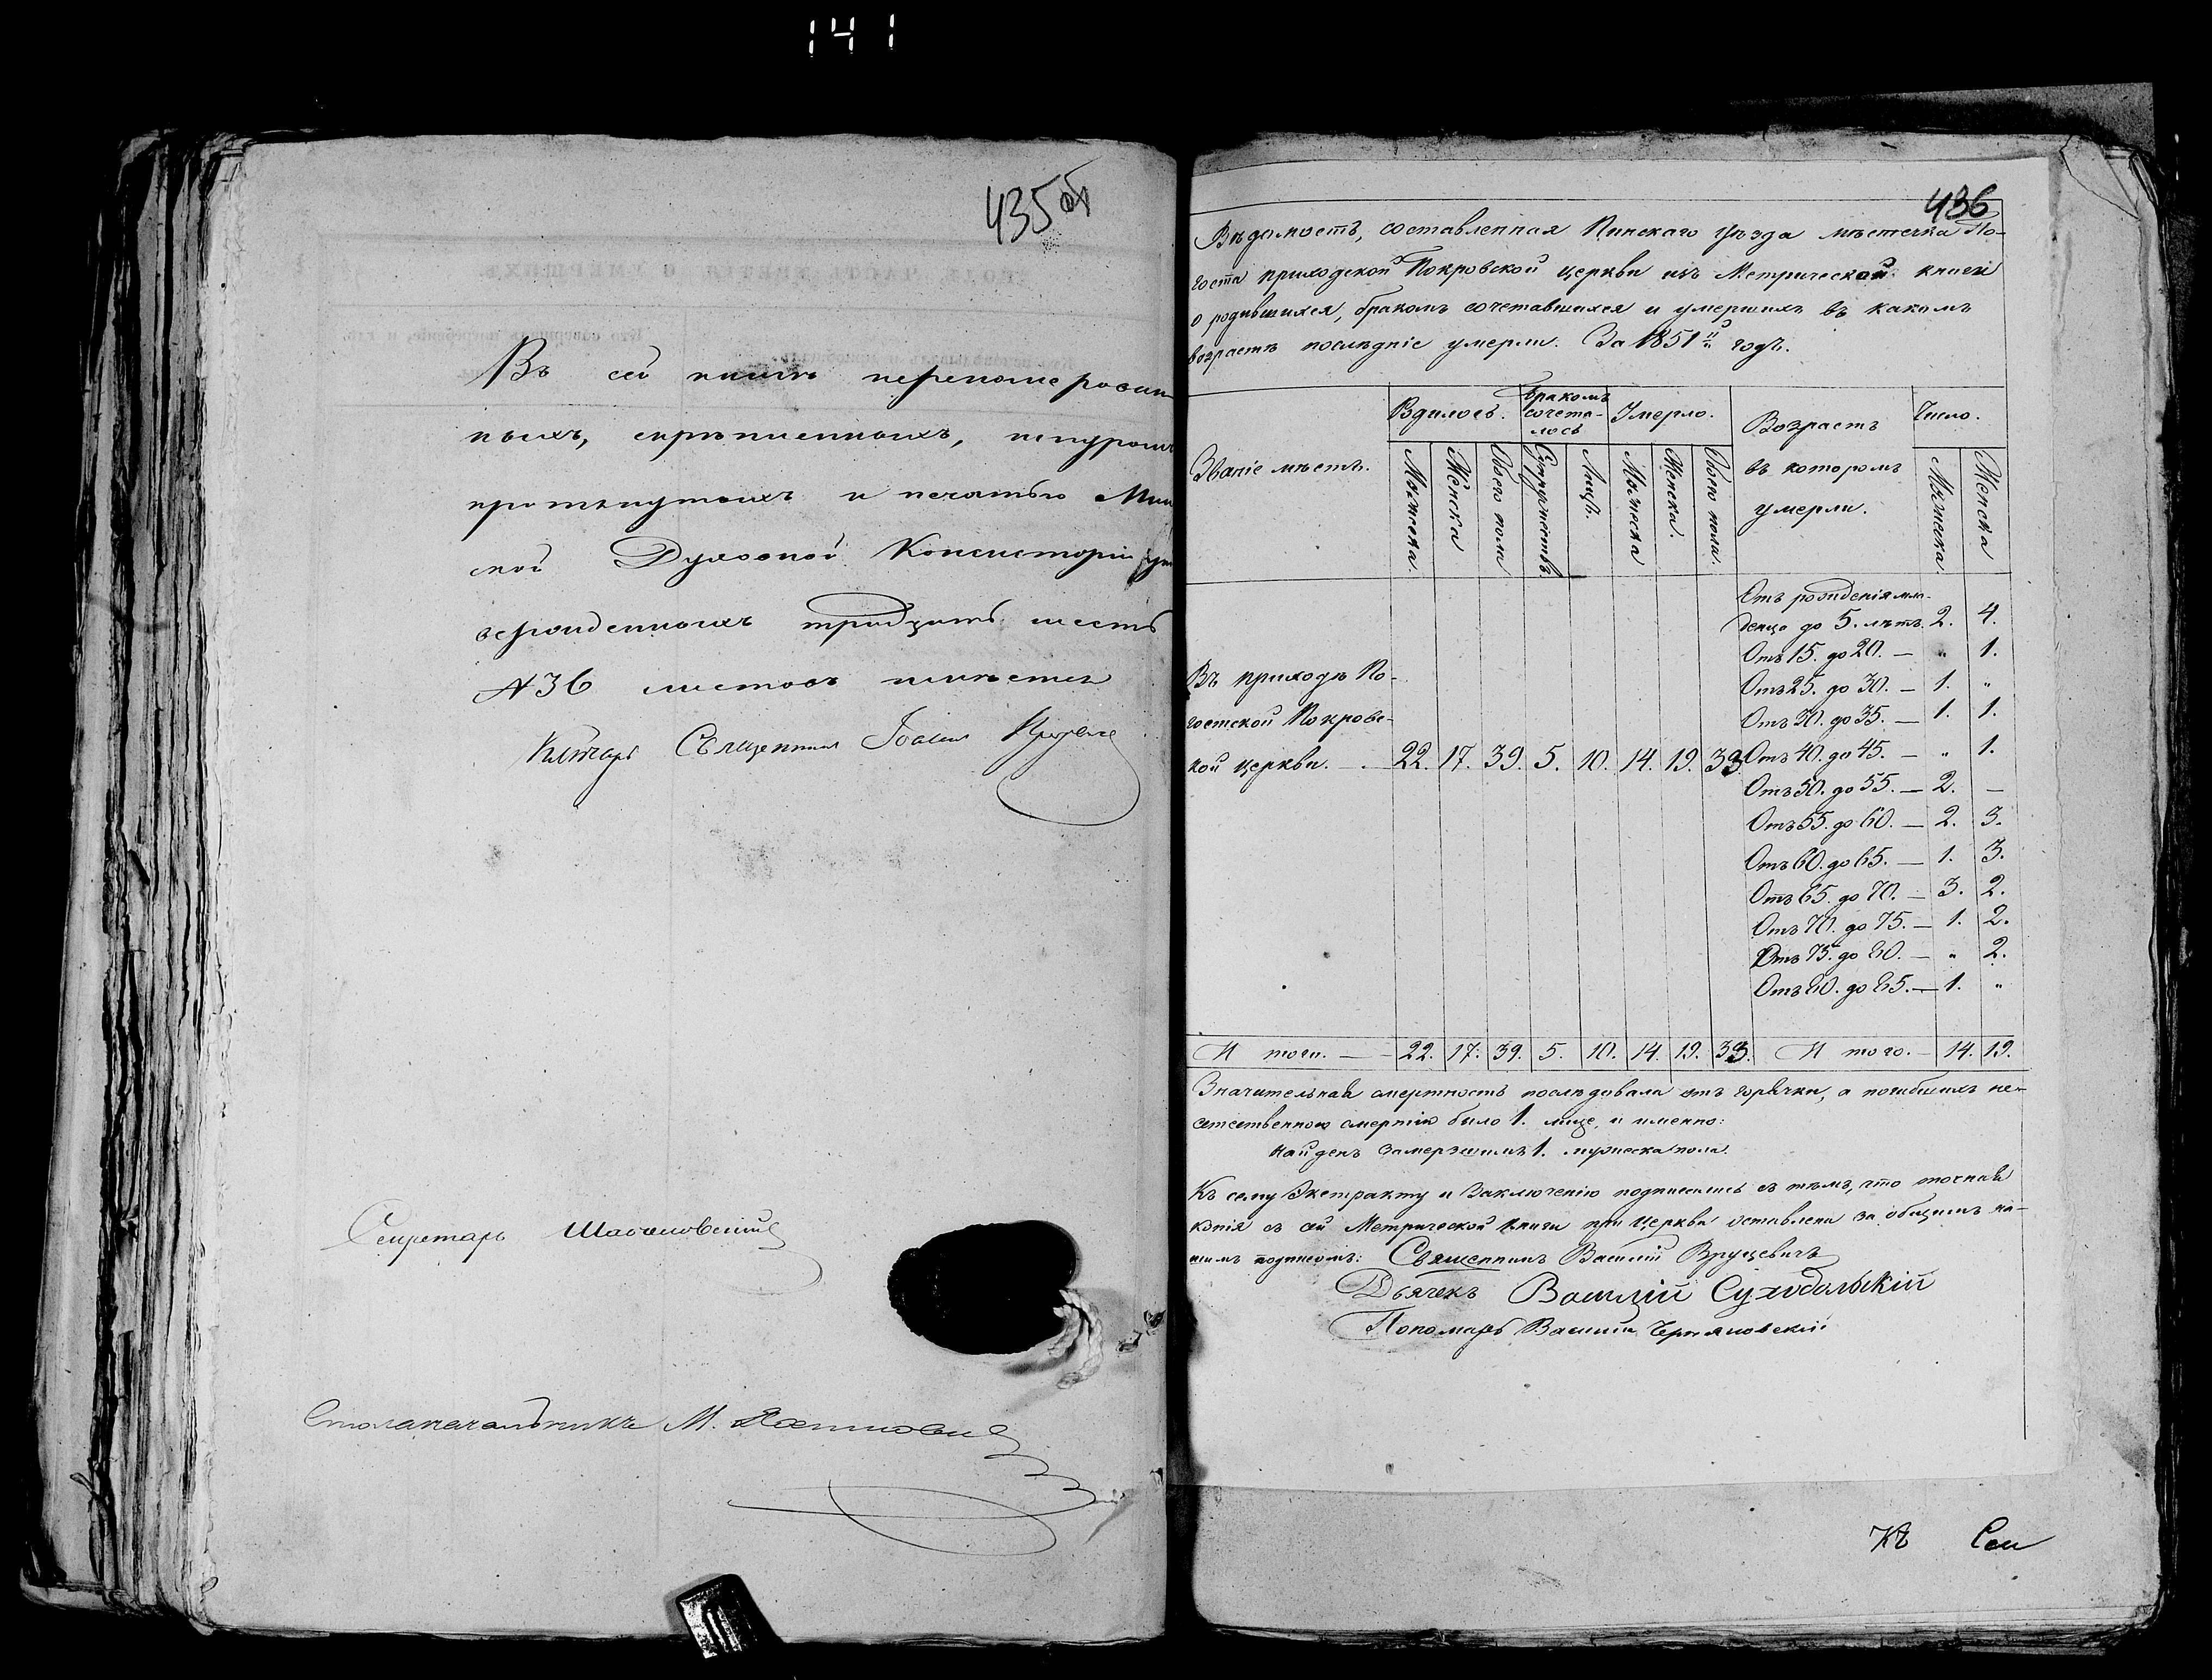 141
435 об
Въ сей книгѣ перенумерован
ныхъ, скрѣпленныхъ, шнуромъ
протянутыхъ и печатью Мин
ской Духовной Консисторіи ут
вержденныхъ тридцать шесть
№ 36 листовъ имѣется
Ключарь Священникъ Іоаннъ
Секретарь
Столоначальникъ М.
436
Вѣдомость, составленная Пинскаго уѣзда мѣстечка По-
госта приходской Покровской церкви изъ Метрической книги
о родившихся, бракомъ сочетавшихся и умершихъ въ какомъ
возрастѣ послѣдніе умерли. За 1851й годъ.
Званіе мѣстъ.
Родилось.
Бракомъ сочета-
лось
Умерло.
Возрастъ
въ которомъ
умерли.
Число.
Мужеска.
Женска
Обоего пола
Супружествъ.
Лицъ.
Мужеска
Женска.
Обоего пола.
Мужеска.
Женска
Отъ рожденія мла-
денца до 5. лѣтъ. 2. 4.
Отъ 15. до 20. — " 1.
Отъ 25. до 30. — 1. "
Отъ 30. до 35. — 1. 1.
Въ приходѣ По-
гостской Покровс-
кой церкви. — 22. 17. 39. 5. 10. 14. 19. 33. Отъ 40. до 45. — " 1.
Отъ 50. до 55. — 2. —
Отъ 55. до 60. — 2. 3.
Отъ 60. до 65. — 1. 3.
Отъ 65. до 70. — 3. 2.
Отъ 70. до 75. — 1. 2.
Отъ 75. до 80. — " 2.
Отъ 80. до 85. — 1. "
И того. — 22. 17. 39. 5. 10. 14. 19. 33. И того. — 14. 19.
Значительная смертность послѣдовала отъ горячки, а погибшихъ не-
естественною смертію было 1. лице, и именно:
Найденъ замерзшимъ 1. мужеска пола.
Къ сему Экстракту и Заключенію подписались съ тѣмъ, что точная
копія съ сей Метрической книги при Церкви оставлена за общимъ на-
шимъ подписомъ: Священникъ Василій Вруцевичъ
Дьячекъ Василій Суходольскій
Пономарь Василій Черняковскій